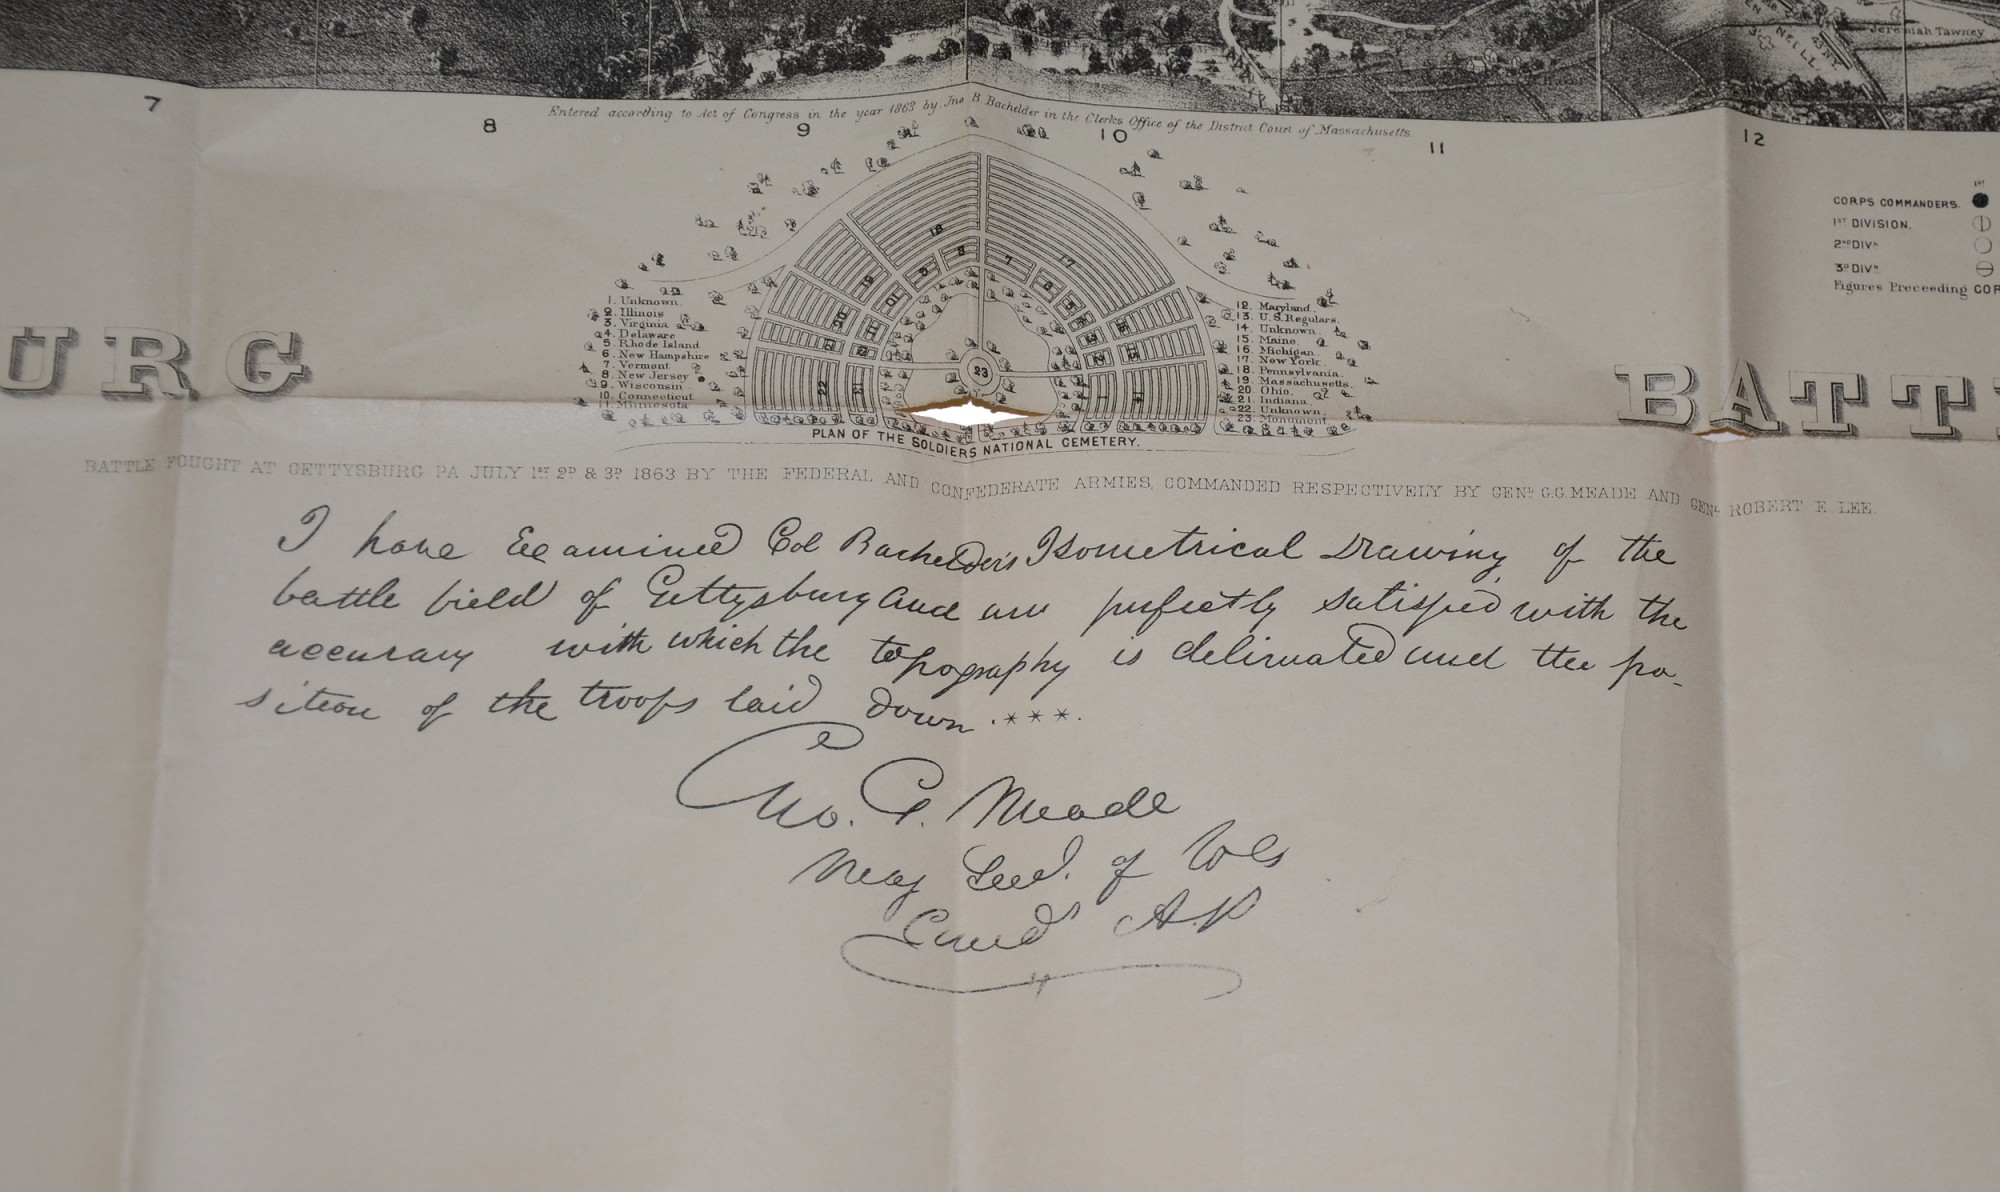 NELL
43 N.Y.
Jeremiah Tawney
7 8 9 10 11 12
Entered according to Act of Congress in the year 1863 by Jno B. Bachelder in the Clerks Office of the District Court of Massachusetts
1ST
CORPS COMMANDERS.
1ST DIVISION.
2ND DIVN
3D DIVN
Figures Preceeding COR
1. Unknown.
2. Illinois
3. Virginia
4. Delaware
5. Rhode Island
6. New Hampshire
7. Vermont
8. New Jersey
9. Wisconsin
10. Connecticut
11. Minnesota
18
17
19
9
8
7
6
5
10
20
11
21
22
23
12. Maryland.
13. U.S. Regulars.
14. Unknown.
15. Maine.
16. Michigan.
17. New York.
18. Pennsylvania.
19. Massachusetts.
20. Ohio.
21. Indiana.
22. Unknown.
23. Monument.
URG
BATT
PLAN OF THE SOLDIERS NATIONAL CEMETERY.
BATTLE FOUGHT AT GETTYSBURG PA JULY 1ST 2D & 3D 1863 BY THE FEDERAL AND CONFEDERATE ARMIES, COMMANDED RESPECTIVELY BY GENL G.G. MEADE AND GENL ROBERT E. LEE.
I have Examined Col Bachelder's Isometrical Drawing of the
battle field of Gettysburg and am perfectly satisfied with the
accuracy with which the topography is delineated and the po-
sition of the troops laid down. ***.
Geo. G. Meade
Maj Genl. of Vols
Comd'g A.P.